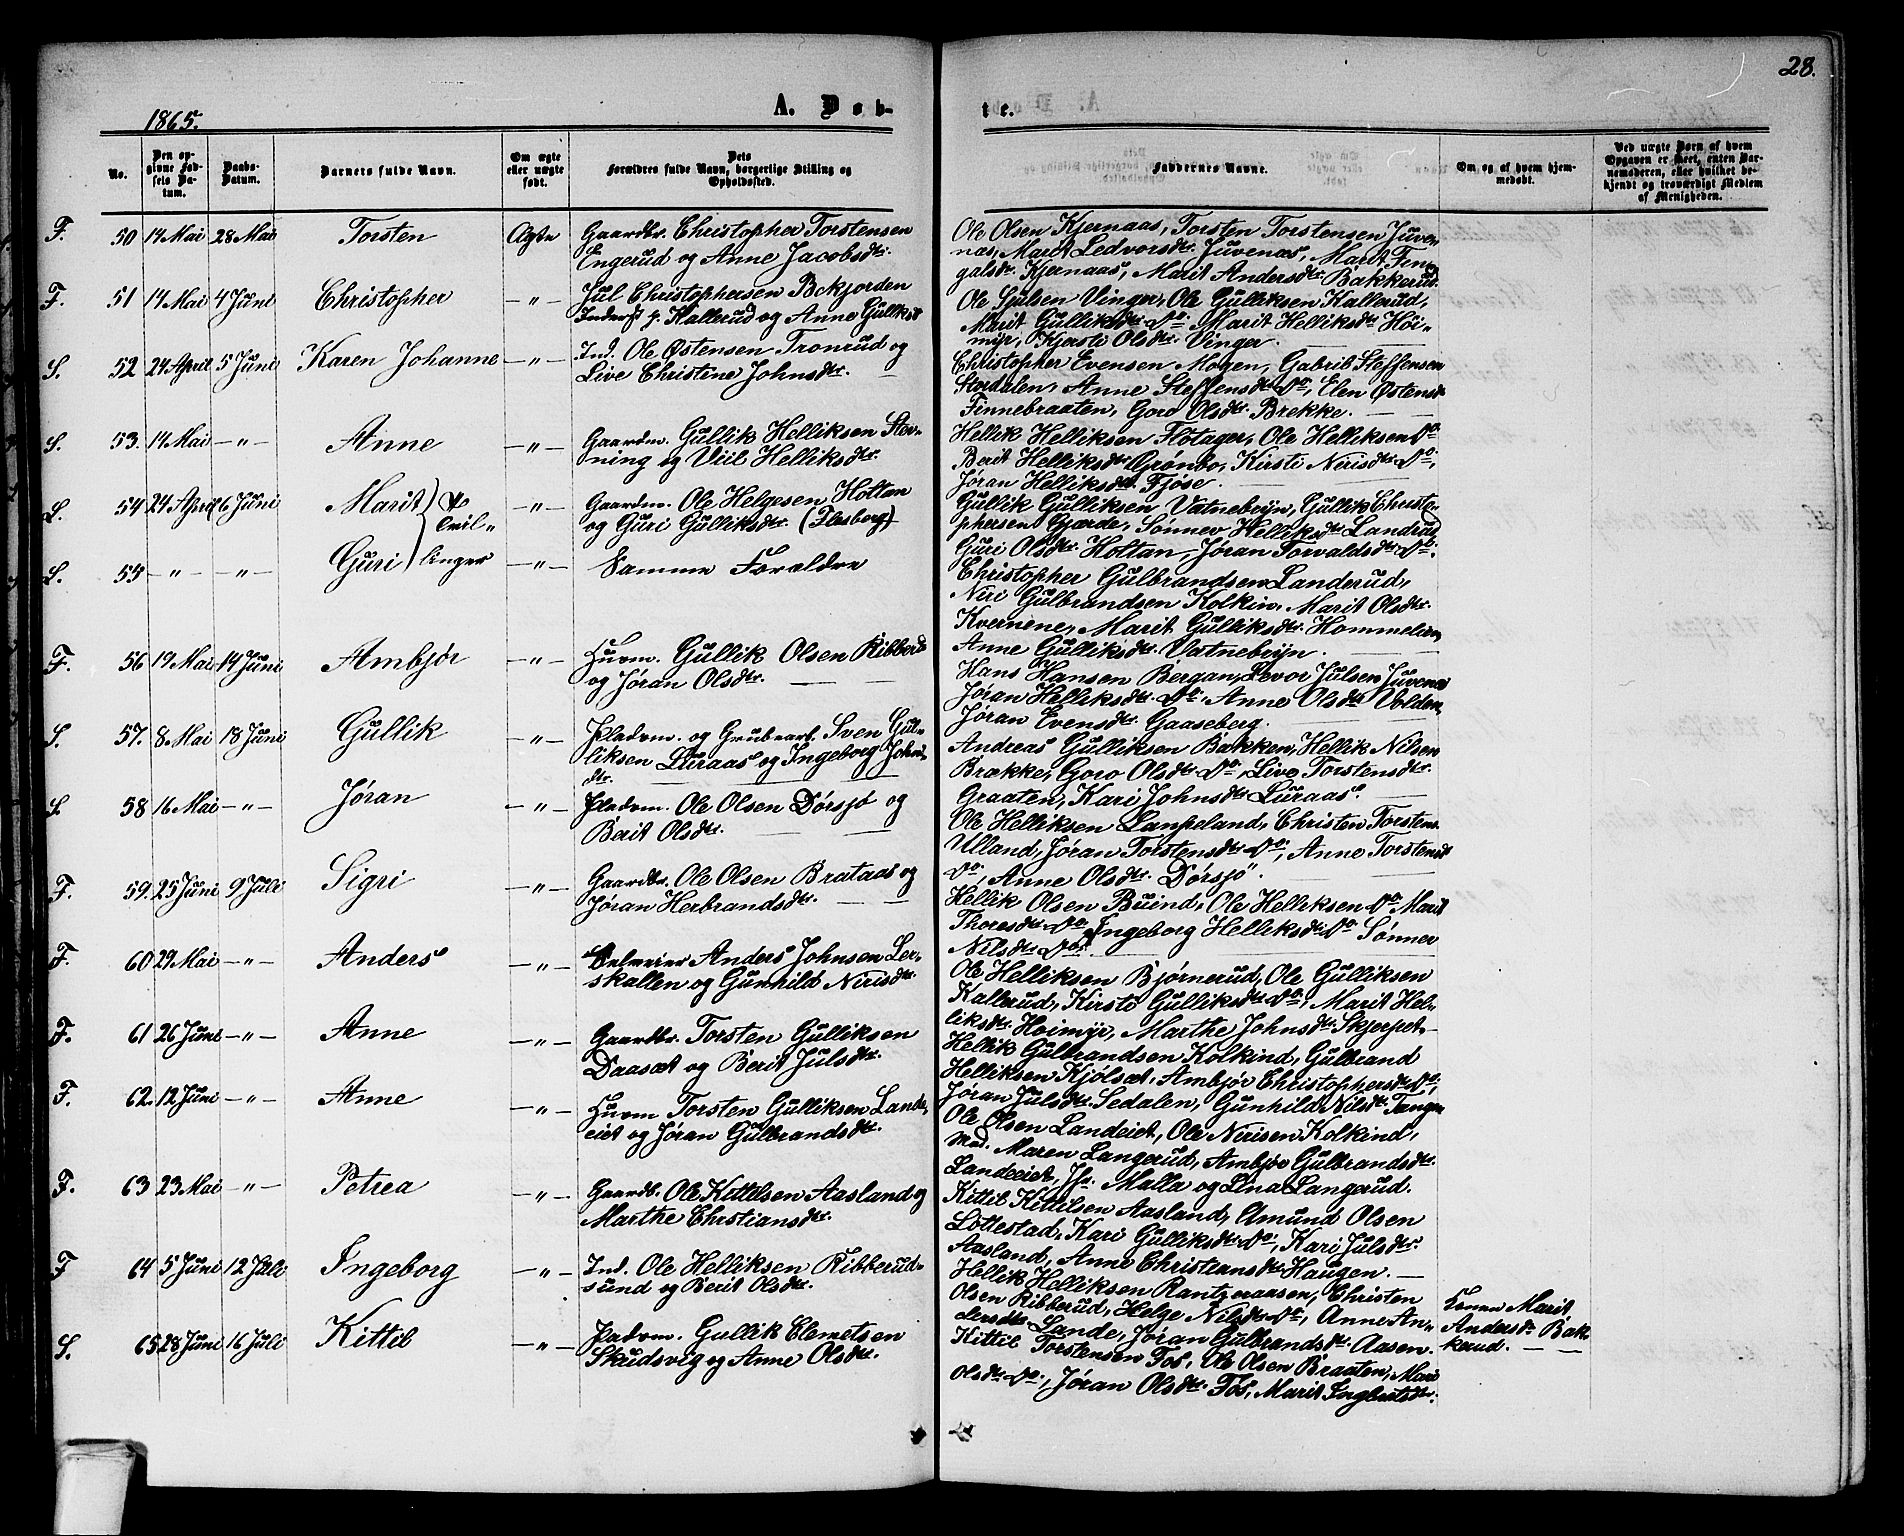 28.
1865.
A. Døb-
te.
No.
Den opgivne Fødsels Datum.
Daabs-Datum.
Barnets fulde Navn.
Om ægte eller uægte født.
Dets Forældres fulde Navn, borgerlige Stilling og Opholdssted.
Faddernes Navne.
Om og af hvem hjemmedøbt.
Ved uægte Børn af hvem Opgaven er skeet, enten Barnemoderen, eller hvilket bekjendt og troværdigt Medlem af Menigheden.
F. 50 14 Mai 28 Mai Torsten Ægte Gaardbr. Christopher Torstensen
Engerud og Anne Jacobsdtr.
Ole Olsen Kjernaas, Torsten Torstensen Juve-
nas, Marit Ledvorsdtr. Juvenas, Marit Fin-
galsdtr. Kjernaas, Marit Andersdtr. Bakkerud.
F. 51 14 Mai 4 Juni Christopher —"— Jul Christophersen Bekjorden
Inderst p. Kallerud og Anne Gulliksd
Ole Sjulsen Vinger, Ole Gulliksen Kallerud,
Marit Gulliksdtr. Do. Marit Helliksdtr. Høi-
myr, Kjersti Olsdtr. Vinger.
S. 52 24 April 5 Juni Karen Johanne —"— Ind. Ole Østensen Tronrud og
Live Christene Johnsdtr.
Christopher Evensen Mogen, Gabril Steffensen
Stordalen, Anne Steffensdtr. Do, Elen Østensd
Finnebraaten, Goro Olsdtr. Brekke.
S. 53. 14 Mai —"— Anne —"— Gaardm. Gullik Helliksen Stev-
ning og Viil Helliksdtr.
Hellik Helliksen Flotager, Ole Helliksen Do
Berit Helliksdtr. Grønbo, Kirsti Nerisdtr. Do,
Jøran Helliksdtr. Fjøse.
S. 54 24 April 6 Juni Marit —"— Gaardm. Ole Helgesen Holtan
og Guri Gulliksdtr. (Flesberg)
Tvil-
linger
Gullik Gulliksen Vatnebryn, Gullik Christo-
phersen Gjærde, Sønnev Helliksdtr. Landrud
Guri Olsdtr. Holtan, Jøran Torvaldsdtr. Do.
S. 55 —"— —"— Guri —"— Samme Forældre
Christopher Gulbrandsen Landerud,
Niri Gulbrandsen Kolkin, Marit Olsdtr.
Kvernene, Marit Gulliksdtr. Hommelien
Anne Gulliksdtr. Vatnebryn.
F. 56 19 Mai 14 Juni Ambjør —"— Huvm. Gullik Olsen Ribberud
og Jøran Olsdtr.
Hans Hansen Bergan, Levor Julsen Juvenas
Jøran Helliksdtr. Do. Anne Olsdtr. Volden,
Jøran Evensdtr. Gaaseberg.
S. 57. 8. Mai 18 Juni Gullik —"— Pladsm. og Grubearb. Sven Gul-
liksen Luraas og Ingeborg Johns
dtr.
Andreas Gulliksen Bakken, Hellik Nilsen
Brække, Goro Olsdtr. Do, Live Torstensdtr.
Graaten, Kari Johnsdtr. Luraas.
S. 58 16 Mai —"— Jøran —"— Pladsm. Ole Olsen Dørsjø og
Berit Olsdtr.
Ole Helliksen Lampeland, Christen Torstens
Ulland, Jøran Torstensdtr. Do, Anne Torstensd
Do, Anne Olsdtr. Dørsjø.
F. 59. 25 Juni 9 Juli Sigri —"— Gaardbr. Ole Olsen Brataas og
Jøran Herbrandsdtr.
Hellik Olsen Buind, Ole Helliksen Do Marit
Thoresdtr. Do. Ingeborg Helliksdtr. Do Sønnev
Nilsdtr. Do.
F. 60 29 Mai —"— Anders —"— Selveier Anders Johnsen Ler-
skallen og Gunhild Nirisdtr.
Ole Helliksen Bjørnerud, Ole Gulliksen
Kallerud, Kirsti Gulliksdtr. Do, Marit Hel-
liksdtr. Høimyr, Marthe Johnsdtr. Skjerpet
F. 61 26 Juni —"— Anne —"— Gaardbr. Torsten Gulliksen
Daasæt og Berit Julsdtr.
Hellik Gulbrandsen Kolkind, Gulbrand
Helliksen Kjølsæt, Ambjør Christophersdtr. Do,
Jøran Julsdtr. Sedalen, Gunhild Nilsdtr. Tangen
F. 62. 12 Juni —"— Anne —"— Huvm Torsten Gulliksen Lande-
eiet og Jøran Gulbrandsdtr.
Ole Olsen Landeiet, Ole Nerisen Kolkind,
Mad. Maren Langerud, Ambjør Gulbrandsdtr.
Landeeiet, Jfr. Malla og Lina Langerud.
F. 63 23 Mai —"— Petrea —"— Gaardb. Ole Kittilsen Aasland og
Marthe Christiansdtr.
Kittil Kittilsen Aasland, Amund Olsen
Lottestad, Kari Gulliksdtr. Do, Kari Julsdtr.
Aasland, Anne Christiansdtr. Haugen.
F 64 5 Juni 12 Juli Ingeborg —"— Ind. Ole Helliksen Ribberud-
sund og Berit Olsdtr.
Hellik Helliksen Rantzeraasen, Christen
Olsen Ribberud, Helge Nilsdtr. Do, Anne An-
dersdtr. Lande, Jøran Gulbrandsdtr. Aasen.
Konen Marit
Andersdtr. Bak-
kerud.
S. 65 28 Juni 16 Juli Kittil —"— Pladsm. Gullik Clemetsen
Skudsvig og Anne Olsdtr.
Kittil Torstensen Fos, Ole Olsen Braaten, Mari
Olsdtr. Do, Jøran Olsdtr. Fos, Marit Ingbretsdtr.